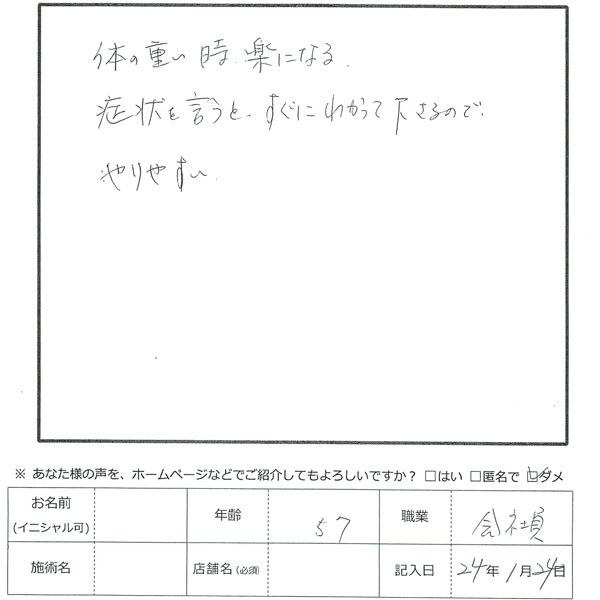 体の重い時、楽になる。
症状を言うと、すぐにわかって下さるので、
やりやすい。
※ あなた様の声を、ホームページなどでご紹介してもよろしいですか？ □はい □匿名で □ダメ
お名前
(イニシャル可)
年齢 57 職業 会社員
施術名 店舗名 (必須) 記入日 24年 1月 24日